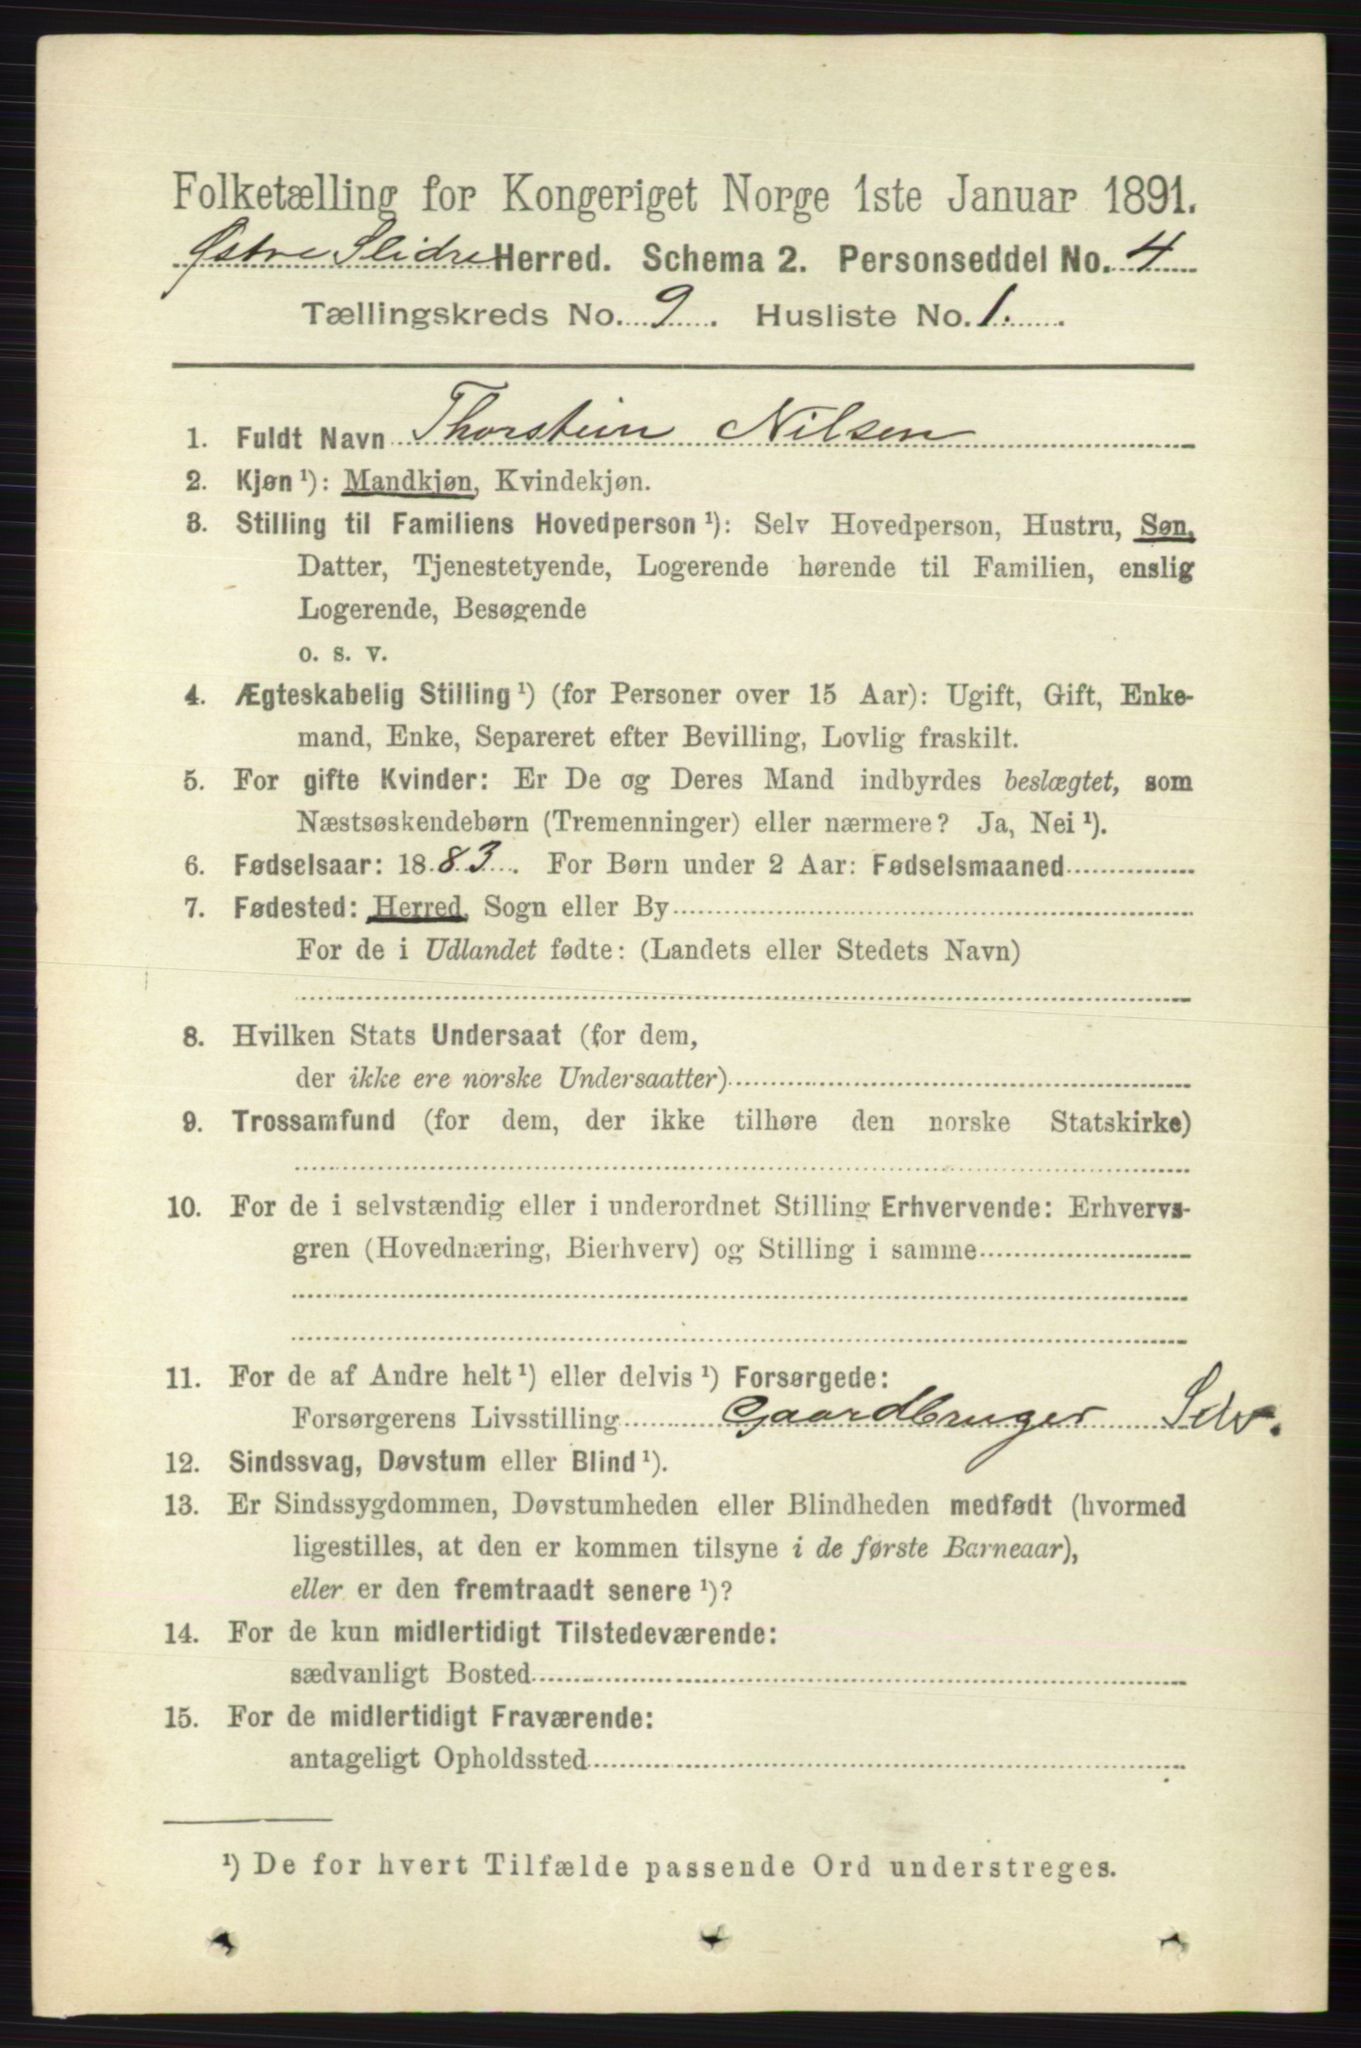 Folketælling for Kongeriget Norge 1ste Januar 1891.
Østre Slidre Herred. Schema 2. Personseddel No. 4
Tællingskreds No. 9. Husliste No. 1.
1. Fuldt Navn Thorstein Nilsen
2. Kjøn ¹): Mandkjøn, Kvindekjøn.
3. Stilling til Familiens Hovedperson ¹): Selv Hovedperson, Hustru, Søn,
Datter, Tjenestetyende, Logerende hørende til Familien, enslig
Logerende, Besøgende
o. s. v.
4. Ægteskabelig Stilling ¹) (for Personer over 15 Aar): Ugift, Gift, Enke-
mand, Enke, Separeret efter Bevilling, Lovlig fraskilt.
5. For gifte Kvinder: Er De og Deres Mand indbyrdes beslægtet, som
Næstsøskendebørn (Tremenninger) eller nærmere? Ja, Nei ¹).
6. Fødselsaar: 1883. For Børn under 2 Aar: Fødselsmaaned
7. Fødested: Herred, Sogn eller By
For de i Udlandet fødte: (Landets eller Stedets Navn)
8. Hvilken Stats Undersaat (for dem,
der ikke ere norske Undersaatter)
9. Trossamfund (for dem, der ikke tilhøre den norske Statskirke)
10. For de i selvstændig eller i underordnet Stilling Erhvervende: Erhvervs-
gren (Hovednæring, Bierhverv) og Stilling i samme
11. For de af Andre helt ¹) eller delvis ¹) Forsørgede:
Forsørgerens Livsstilling Gaardbruger Selv.
12. Sindssvag, Døvstum eller Blind ¹).
13. Er Sindssygdommen, Døvstumheden eller Blindheden medfødt (hvormed
ligestilles, at den er kommen tilsyne i de første Barneaar),
eller er den fremtraadt senere ¹)?
14. For de kun midlertidigt Tilstedeværende:
sædvanligt Bosted
15. For de midlertidigt Fraværende:
antageligt Opholdssted
¹) De for hvert Tilfælde passende Ord understreges.